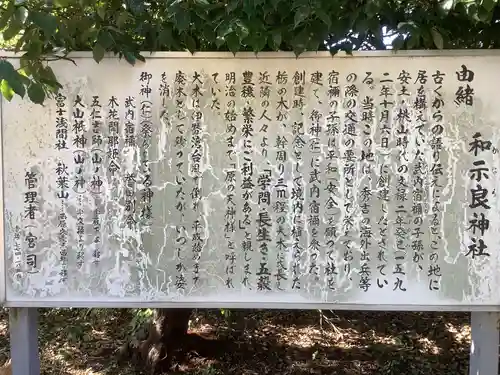 由緒
和示良神社
古くからの語り伝えによると、この地に
居を構えていた武内宿禰の子孫が、
安土・桃山時代の文禄二年癸巳(一五九
三年十月六日)に創建したとされてい
る。当時この地は、秀吉の海外出兵等
の際の交通の要所として栄えており、
宿禰の子孫は平和・安全を願って社を
建て、御神(仁)に武内宿禰を祭った。
創建時、記念として境内に植えられた
栃の木が、幹周り三m程の大木に成長し
近隣の人々より、「学問・長生き・五穀
豊穣・繁栄にご利益がある」と信頼され、
明治の始めまで「原の天神様」と呼ばれ
ていた。
大木は伊勢湾台風で倒れ、平成始めまで
廃木として残っていたが、いつしか姿
を消した。
御神(仁)祭られている神様
武内宿禰命 菅原別命
木花開耶姫命
五仁吉師(山ノ神)
大山祇神(山ノ神)
富士浅間社 秋葉山
管理者(宮司)